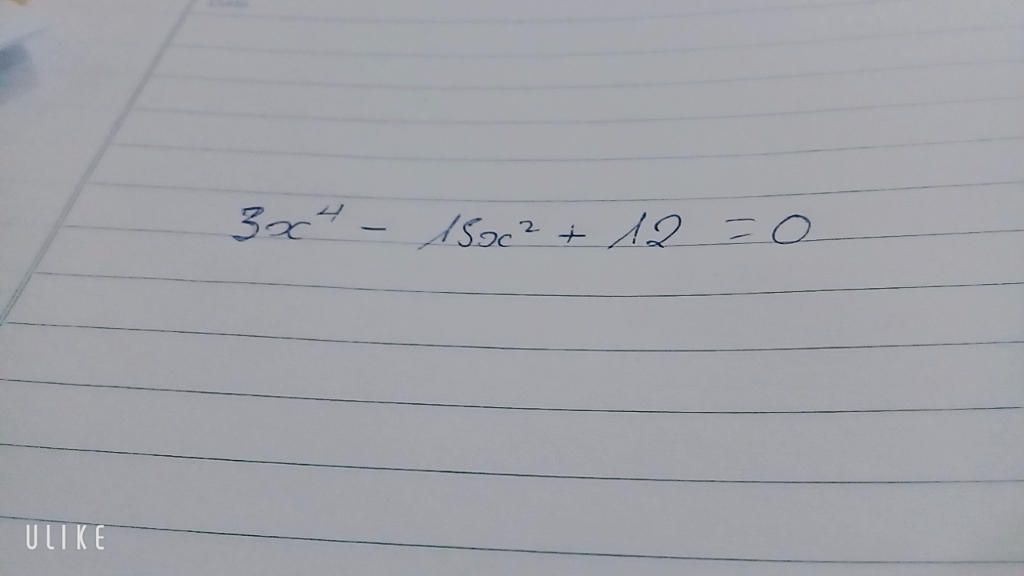 3x⁴ - 15x² + 12 = 0
ULIKE